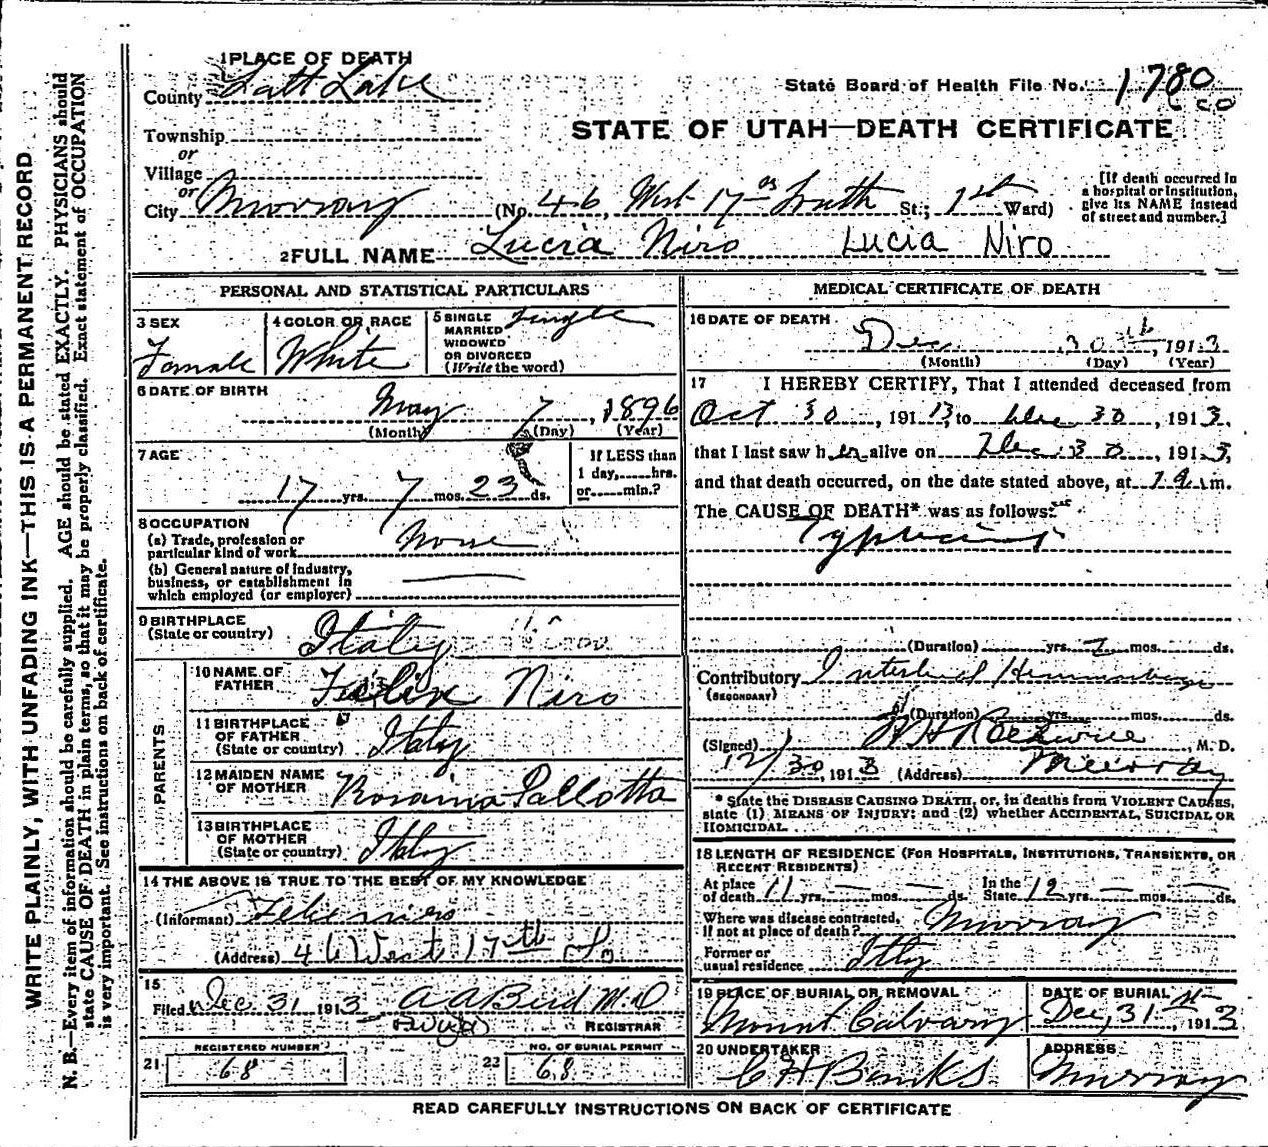 WRITE PLAINLY, WITH UNFADING INK—THIS IS A PERMANENT RECORD
N. B.—Every item of information should be carefully supplied. AGE should be stated EXACTLY. PHYSICIANS should
state CAUSE OF DEATH in plain terms, so that it may be properly classified. Exact statement of OCCUPATION
is very important. See instructions on back of certificate.
1 PLACE OF DEATH
County Salt Lake
State Board of Health File No. 1780
Township
STATE OF UTAH—DEATH CERTIFICATE
or
Village
or
City Murray (No. 46, West 17th South St.; 1st Ward)
[If death occurred in
a hospital or institution,
give its NAME instead
of street and number.]
2 FULL NAME Lucia Niro Lucia Niro
PERSONAL AND STATISTICAL PARTICULARS
3 SEX
Female
4 COLOR OR RACE
White
5 SINGLE
MARRIED
WIDOWED
OR DIVORCED
(Write the word)
Single
6 DATE OF BIRTH
May 7, 1896
(Month) (Day) (Year)
7 AGE
17 yrs. 7 mos. 23 ds.
If LESS than
1 day, hrs.
or min.?
8 OCCUPATION
(a) Trade, profession or
particular kind of work None
(b) General nature of industry,
business, or establishment in
which employed (or employer)
9 BIRTHPLACE
(State or country) Italy
PARENTS
10 NAME OF
FATHER Felix Niro
11 BIRTHPLACE
OF FATHER
(State or country) Italy
12 MAIDEN NAME
OF MOTHER Rosaina Pallotta
13 BIRTHPLACE
OF MOTHER
(State or country) Italy
14 THE ABOVE IS TRUE TO THE BEST OF MY KNOWLEDGE
(Informant)
(Address) 46 West 17th So
15
Filed Dec 31 1913 A A Bird M.D
REGISTRAR
REGISTERED NUMBER
21 68
NO. OF BURIAL PERMIT
22 68
MEDICAL CERTIFICATE OF DEATH
16 DATE OF DEATH
Dec 30th, 1913
(Month) (Day) (Year)
17 I HEREBY CERTIFY, That I attended deceased from
Oct 30, 1913, to Dec 30, 1913,
that I last saw her alive on Dec 30, 1913,
and that death occurred, on the date stated above, at m.
The CAUSE OF DEATH* was as follows:
(Duration) yrs. 2 mos. ds.
Contributory
(SECONDARY)
(Duration) yrs. mos. ds.
(Signed) , M. D.
12/30, 1913 (Address) Murray
* State the DISEASE CAUSING DEATH, or, in deaths from VIOLENT CAUSES,
state (1) MEANS OF INJURY; and (2) whether ACCIDENTAL, SUICIDAL OR
HOMICIDAL.
18 LENGTH OF RESIDENCE (FOR HOSPITALS, INSTITUTIONS, TRANSIENTS, OR
RECENT RESIDENTS)
At place
of death 11 yrs. — mos. — ds. In the
State 12 yrs. — mos. — ds.
Where was disease contracted,
if not at place of death? Murray
Former or
usual residence Itly
19 PLACE OF BURIAL OR REMOVAL
Mount Calvary
DATE OF BURIAL
Dec, 31st, 1913
20 UNDERTAKER
C H Banks
ADDRESS
Murray
READ CAREFULLY INSTRUCTIONS ON BACK OF CERTIFICATE